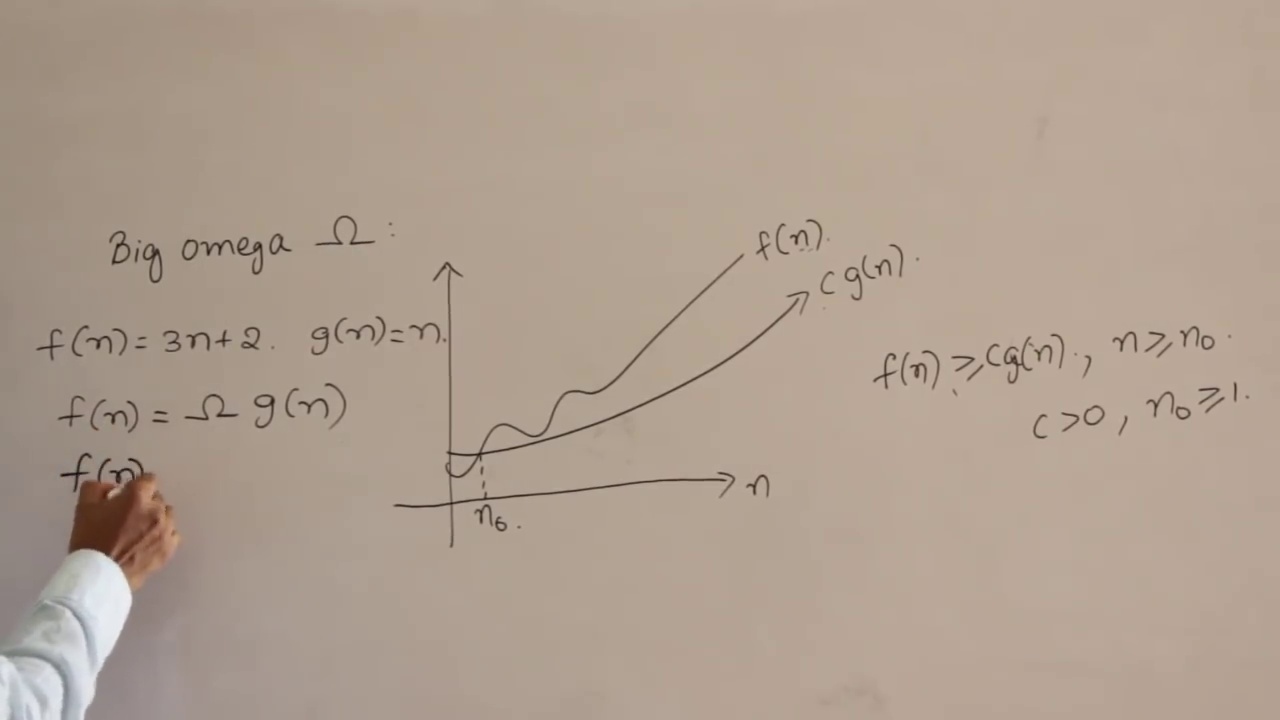 Big omega Ω :
f(n) = 3n+2. g(n)=n.
f(n) = Ω g(n)
f(n)
f(n).
c g(n).
n
n₀.
f(n) ≥ cg(n)., n ≥ n₀.
c >0 , n₀ ≥ 1.